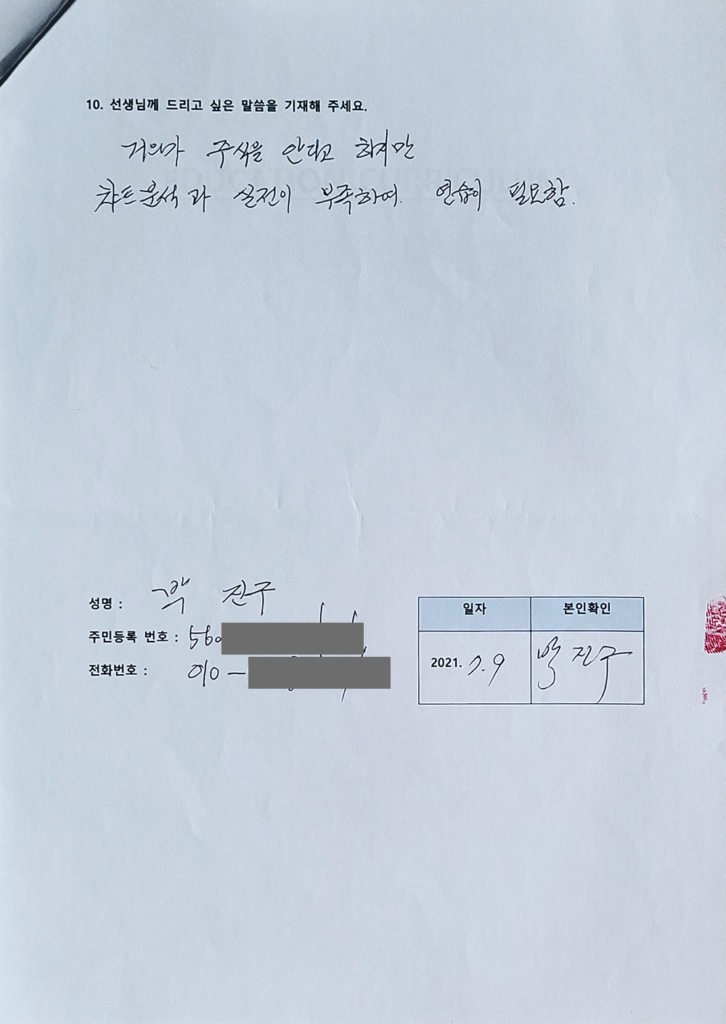 10. 선생님께 드리고 싶은 말씀을 기재해 주세요.
거의가 주식을 안다고 하지만
챠트분석과 실전이 부족하여. 연습이 필요함.
성명 : 박 진구
주민등록 번호 : 560
전화번호 : 010 -
일자 본인확인
2021. 7.9 박진구